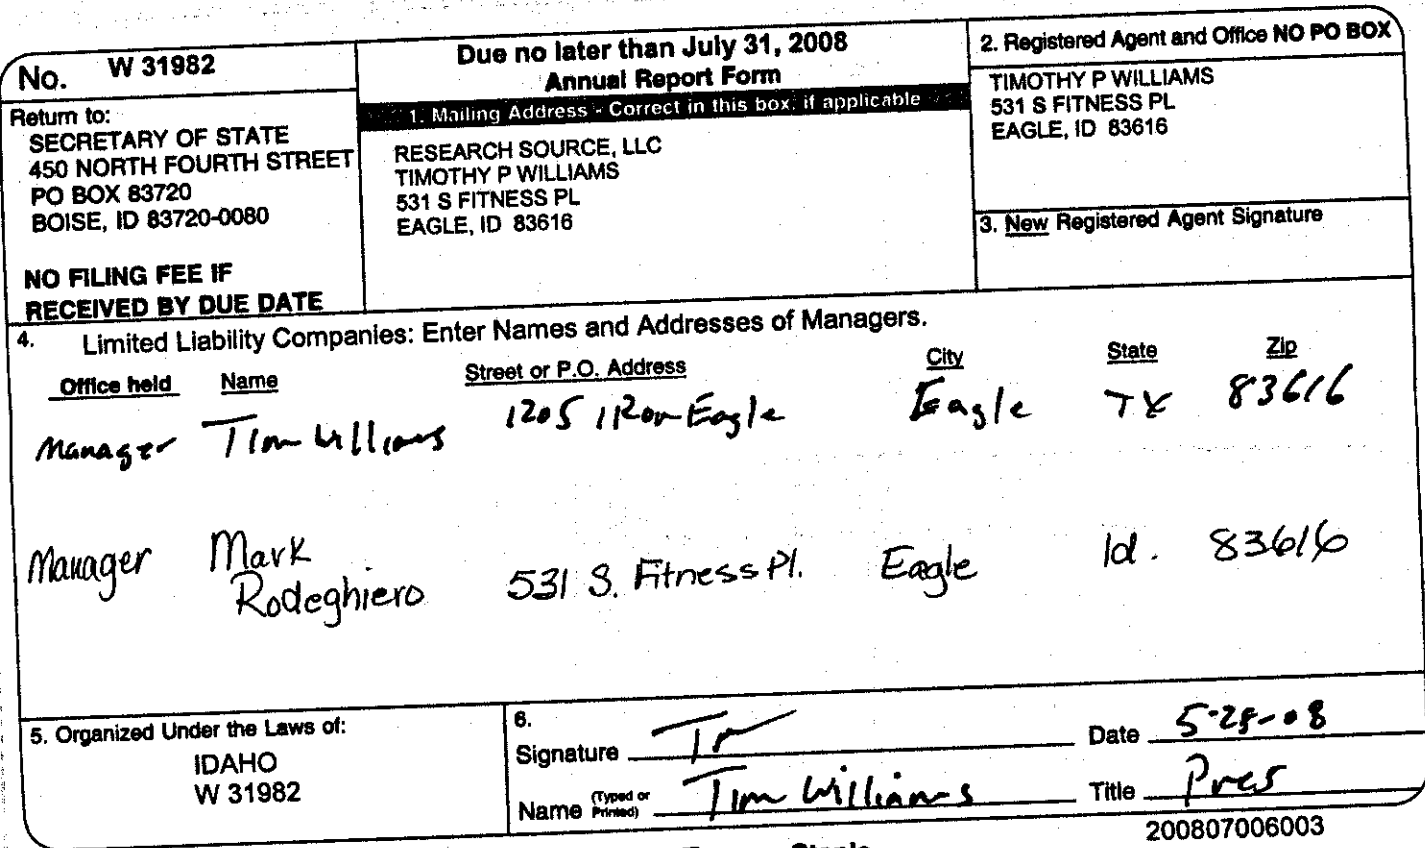 No. W 31982
Return to:
SECRETARY OF STATE
450 NORTH FOURTH STREET
PO BOX 83720
BOISE, ID 83720-0080
NO FILING FEE IF
RECEIVED BY DUE DATE
Due no later than July 31, 2008
Annual Report Form
1. Mailing Address - Correct in this box, if applicable
RESEARCH SOURCE, LLC
TIMOTHY P WILLIAMS
531 S FITNESS PL
EAGLE, ID 83616
2. Registered Agent and Office NO PO BOX
TIMOTHY P WILLIAMS
531 S FITNESS PL
EAGLE, ID 83616
3. New Registered Agent Signature
4. Limited Liability Companies: Enter Names and Addresses of Managers.
Office held Name Street or P.O. Address City State Zip
Manager Tim Williams 1205 Iron Eagle Eagle 83616
Manager Mark Rodeghiero 531 S. Fitness Pl. Eagle Id. 83616
5. Organized Under the Laws of:
IDAHO
W 31982
6.
Signature Date 5-28-08
Name (Typed or Printed) Tim Williams Title Pres
200807006003